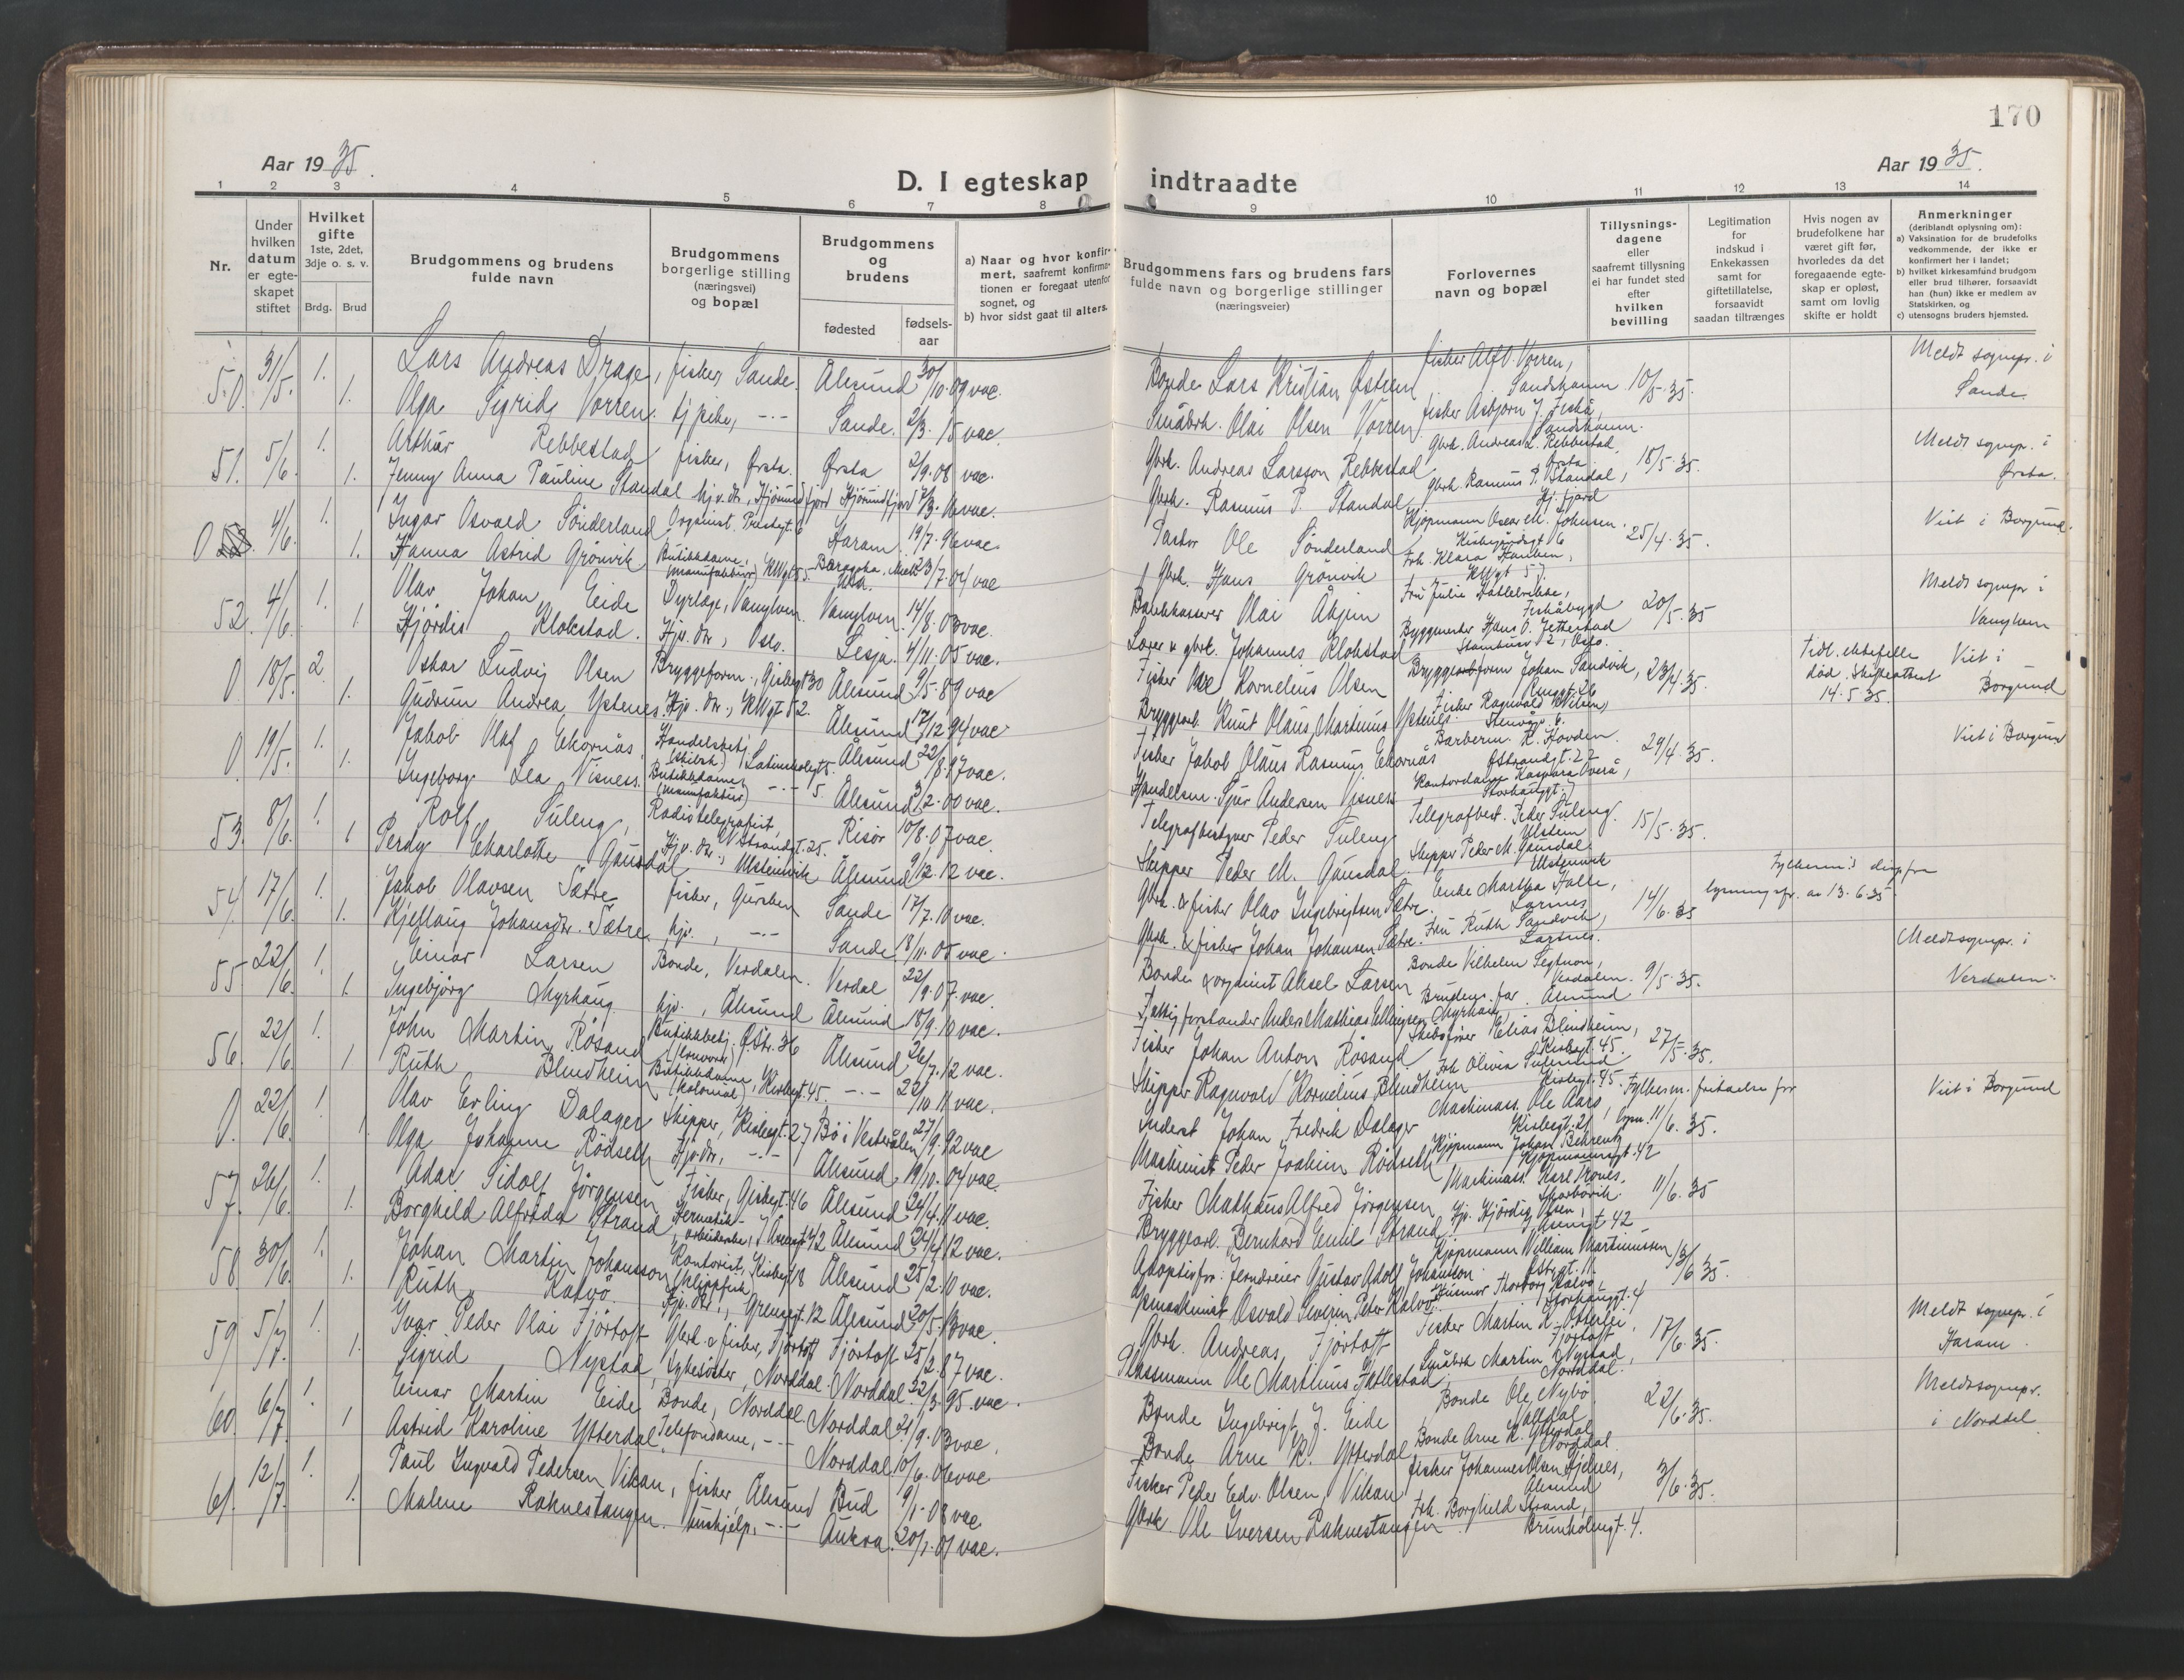 170
Aar 1935.
D. I egteskap
indtraadte
Aar 1935.
1 2 3 4 5 6 7 8 9 10 11 12 13 14
Nr.
Under hvilken datum er egte-skapet stiftet
Hvilket gifte 1ste, 2det, 3dje o. s. v.
Brdg. Brud
Brudgommens og brudens fulde navn
Brudgommens borgerlige stilling (næringsvei) og bopæl
Brudgommens og brudens
fødested
fødsels-aar
a) Naar og hvor konfir-mert, saafremt konfirma-tionen er foregaat utenfor sognet, og
b) hvor sidst gaat til alters.
Brudgommens fars og brudens fars fulde navn og borgerlige stillinger (næringsveier)
Forlovernes navn og bopæl
Tillysnings-dagene eller saafremt tillysning ei har fundet sted efter hvilken bevilling
Legitimation for indskud i Enkekassen samt for giftetillatelse, forsaavidt saadan tiltrænges
Hvis nogen av brudefolkene har været gift før, hvorledes da det foregaaende egte-skap er opløst, samt om lovlig skifte er holdt
Anmerkninger (deriblandt oplysning om):
a) Vaksination for de brudefolks vedkommende, der ikke er konfirmert her i landet;
b) hvilket kirkesamfund brudgom eller brud tilhører, forsaavidt han (hun) ikke er medlem av Statskirken, og
c) utensogns bruders hjemsted.
50. 31/5. 1. Lars Andreas Drage, fisker, Sande. Ålesund 30/10.09 vac. Bonde Lars Kristian Østren fisker Alfr. Vorren, Sandshamn 10/5.35. Meldt sognepr. i Sande.
1. Olga Sigrid Vorren. tj.pike, -.- Sande. 2/3. 15 vac. Småbrk. Olai Olsen Vorren fisker Asbjørn J. Fiskå, Sandshamn.
51. 5/6. 1. Arthur Rebbestad fisker, Ørsta. Ørsta 2/9.08 vac. Gbrk. Andreas Larsson Rebbestad Gbrk. Andreas L. Rebbestad, Ørsta 18/5.35. Meldt sognepr. i Ørsta.
1. Jenny Anna Pauline Standal hjv. dr., Hjørundfjord Hjørundfjord 7/3. 16 vac. Gbrk. Rasmus P. Standal Gbrk. Rasmus P. Standal, Hj.fjord
0 4/6. 1. Ingar Osvald Sönderland Organist. Prestegt. 6 Haram 19/7. 96 vac. Pastor Ole Sönderland Kjøpmann Oscar M. Johnsen. Kirkegårdsgt 6 25/4.35. Viet i Borgund.
1. Hanna Astrid Grönvik Butikkdame (manufaktur) KWgt 55. 23/7.04 vac Gbrk. Hans Grönvik Frk. Klara Hansen, KWgt 57.
52. 4/6. 1. Olav Johan Eide Dyrlæge, Vanylven. Vanylven. 14/8. 03 vac. Bankkasserer Olai Åhjem Fru Julie Fiskåbygd 20/5.35 Meldt sognepr i Vanylven
1 Hjördis Klokstad. Hjv. dr., Oslo. Lesja. 4/11.05 vac. Lærer & gbrk. Johannes Klokstad Byggmester Hans O. Jetterstad Oslo.
0. 18/5. 2. Oskar Ludvig Olsen Bryggeform., Giskegt 30 Ålesund 9/5.89 vac Fisker Ole Kornelius Olsen Bryggeform Johan Sandvik, 23/4.35. Tidl. ektefelle død. Skifteattest 14.5.35. Viet i Borgund
1. Gudrun Andrea Ystenes. Hjv. dr., KWgt 52. Ålesund 17/12 94 vac Bryggearb. Knut Olaus Martinus Ystenes. Fisker Ragnvald Nilsen, Stenvåg. 6.
0. 19/5. 1. Jakob Olaf Ekornås. Handelsbetj. Latinskolegt 5. Ålesund 22/8. 97 vac. Fisker Jakob Olaus Rasmus Ekornås Barberm. K. Hovden. ØStrandgt. 22 29/4.35. Viet i Borgund
1. Ingeborg Lea Visnes. Butikkdame (manufaktur) -.- 5. Ålesund 3/2.00 vac. Handelsm. Sjur Andersen Visnes Kontordame Kaspara Overå, Storhauggt. 7
53. 8/6. 1. Rolf Suleng, Radiotelegrafist, NStrandgt. 25. Risör 10/8.07 vac. Telegrafbestyrer Peder Suleng Telegrafbest. Peder Suleng. Ulstein 15/5.35.
1 Perdy Charlotte Gausdal Hjv. dr., Ulsteinvik Ålesund 9/12.12 vac. Skipper Peder M. Gausdal. Skipper Peder M. Gausdal Ulsteinvik
54. 17/6. 1. Jakob Olavsen Sætre fisker, Gursken Sande 17/7.10 vac. Gbrk. & fisker Olav Ingebrigtsen Sætre. Enke Martha Halle, Larsnes 14/6.35 Fylkesm.s disp fra lysningsfr. av 13.6.35.
1. Kjellaug Johansdr. Sætre. hjv., -.- Sande 18/11.05 vac. Gbrk. & fisker Johan Johansen Sætre. Fru Ruth Sandvik, Larsnes.
55 22/6. 1. Einar Larsen Bonde, Verdalen. Verdal 22/9.07. vac. Bonde & organist Aksel Larsen Bonde Vilhelm Segtnan, Verdalen. 9/5.35. Meldt sognepr. i Verdalen.
1. Ingebjörg Myrhaug hjv., Ålesund Ålesund 18/9.10 vac. Fattigforstander Anders Mathias Ellingsen Myrhaug Brudens far. Ålesund
56. 22/6 1. John Martin Rösand Butikkbetj. ØStr. 36 Ålesund 26/7.12 vac. Fisker Johan Anton Rösand Skibsfører Elias Blindheim, Kirkegt. 45. 27/5.35.
1. Ruth Blindheim Butikkdame, (kolonial) Kirkegt. 45. -.- 22/10 11 vac. Skipper Ragnvald Kornelius Blindheim Frk Olivia Kirkegt. 45.
0. 22/6. 1. Olav Erling Dalager Skipper, Kirkegt. 27 Bö i Vesterålen 27/9.92 vac Inderst Johan Fredrik Dalager Maskinass. Ole Aars, Kirkegt. 21 11/6.35. Fylkesm. fritagelse for lysn. Viet i Borgund
1. Olga Johanne Rödseth Hjv. dr., -.- Ålesund 19/10.04 vac. Maskinist Peder Joakim Rödseth Kjøpmann Johan Behrentz Kjøpmannsgt. 42
57. 26/6. 1. Adar Sidolf Jörgensen Fisker, Giskegt. 46 Ålesund 24/4.11 vac. Fisker Mathæus Alfred Jörgensen Maskinass. Karl Trones, Skarbövik. 11/6.35
1. Borghild Alfrida Strand Hermetikk-arbeiderske, J. Aasensgt 42 Ålesund 24/4 12 vac. Bryggearb. Bernhard Emil Strand Hjv. Hjördis Olsen, Asensgt 42
58. 30/6. 1. Johan Martin Johansson Kontorist, Kirkegt 18 Ålesund 25/2.10 vac. Adoptivfar: Jerndreier Gustav Adolf Johansson Kjøpmann William Martinussen 13/6 35.
1. Ruth Kalvö. Hjv. dr., Grensegt. 12 Ålesund 20/5.13 vac. Osvald Severin Peter Kalvö. Husmor Thorborg Kalvö, Storhauggt. 4
59 5/7. 1. Ivar Peder Olai Fjörtoft Gbrk & fisker, Fjörtoft Fjörtoft 25/2.87 vac. Gbrk. Andreas Fjörtoft Fisker Martin K. Otterlei, Fjörtoft 17/6.35. Meldt sognepr. i Haram
1. Sigrid Nystad, Sykesöster, Norddal. Norddal. 22/3.95. vac. Plassmann Ole Martinus Fatlestad Småbrk Martin Nystad, Norddal.
60 6/7 1. Einar Martin Eide Bonde, Norddal. Norddal 21/9.03 vac. Bonde Ingebrigt J. Eide Bonde Ole Nybö Valldal 22/6.35. Meldt sognepr. i Norddal
1 Astrid Karoline Ytterdal Telefondame, -.- Norddal 10/6.06 vac Bonde Arne K. Ytterdal Bonde Arne K. Ytterdal Norddal
61. 12/7. 1. Paul Ingvald Pedersen Vikan, fisker, Ålesund Bud 9/1.08 vac Fisker Peder Edv. Olsen Vikan fisker Johannes Olsen Hjelnes, Ålesund 3/6.35.
1. Malene Raknestangen. hushjelp, -.- Aukra. 20/1.01 vac. Gbrk. Ole Iversen Raknestangen Frk. Borghild Strand, Brunholmgt. 4.